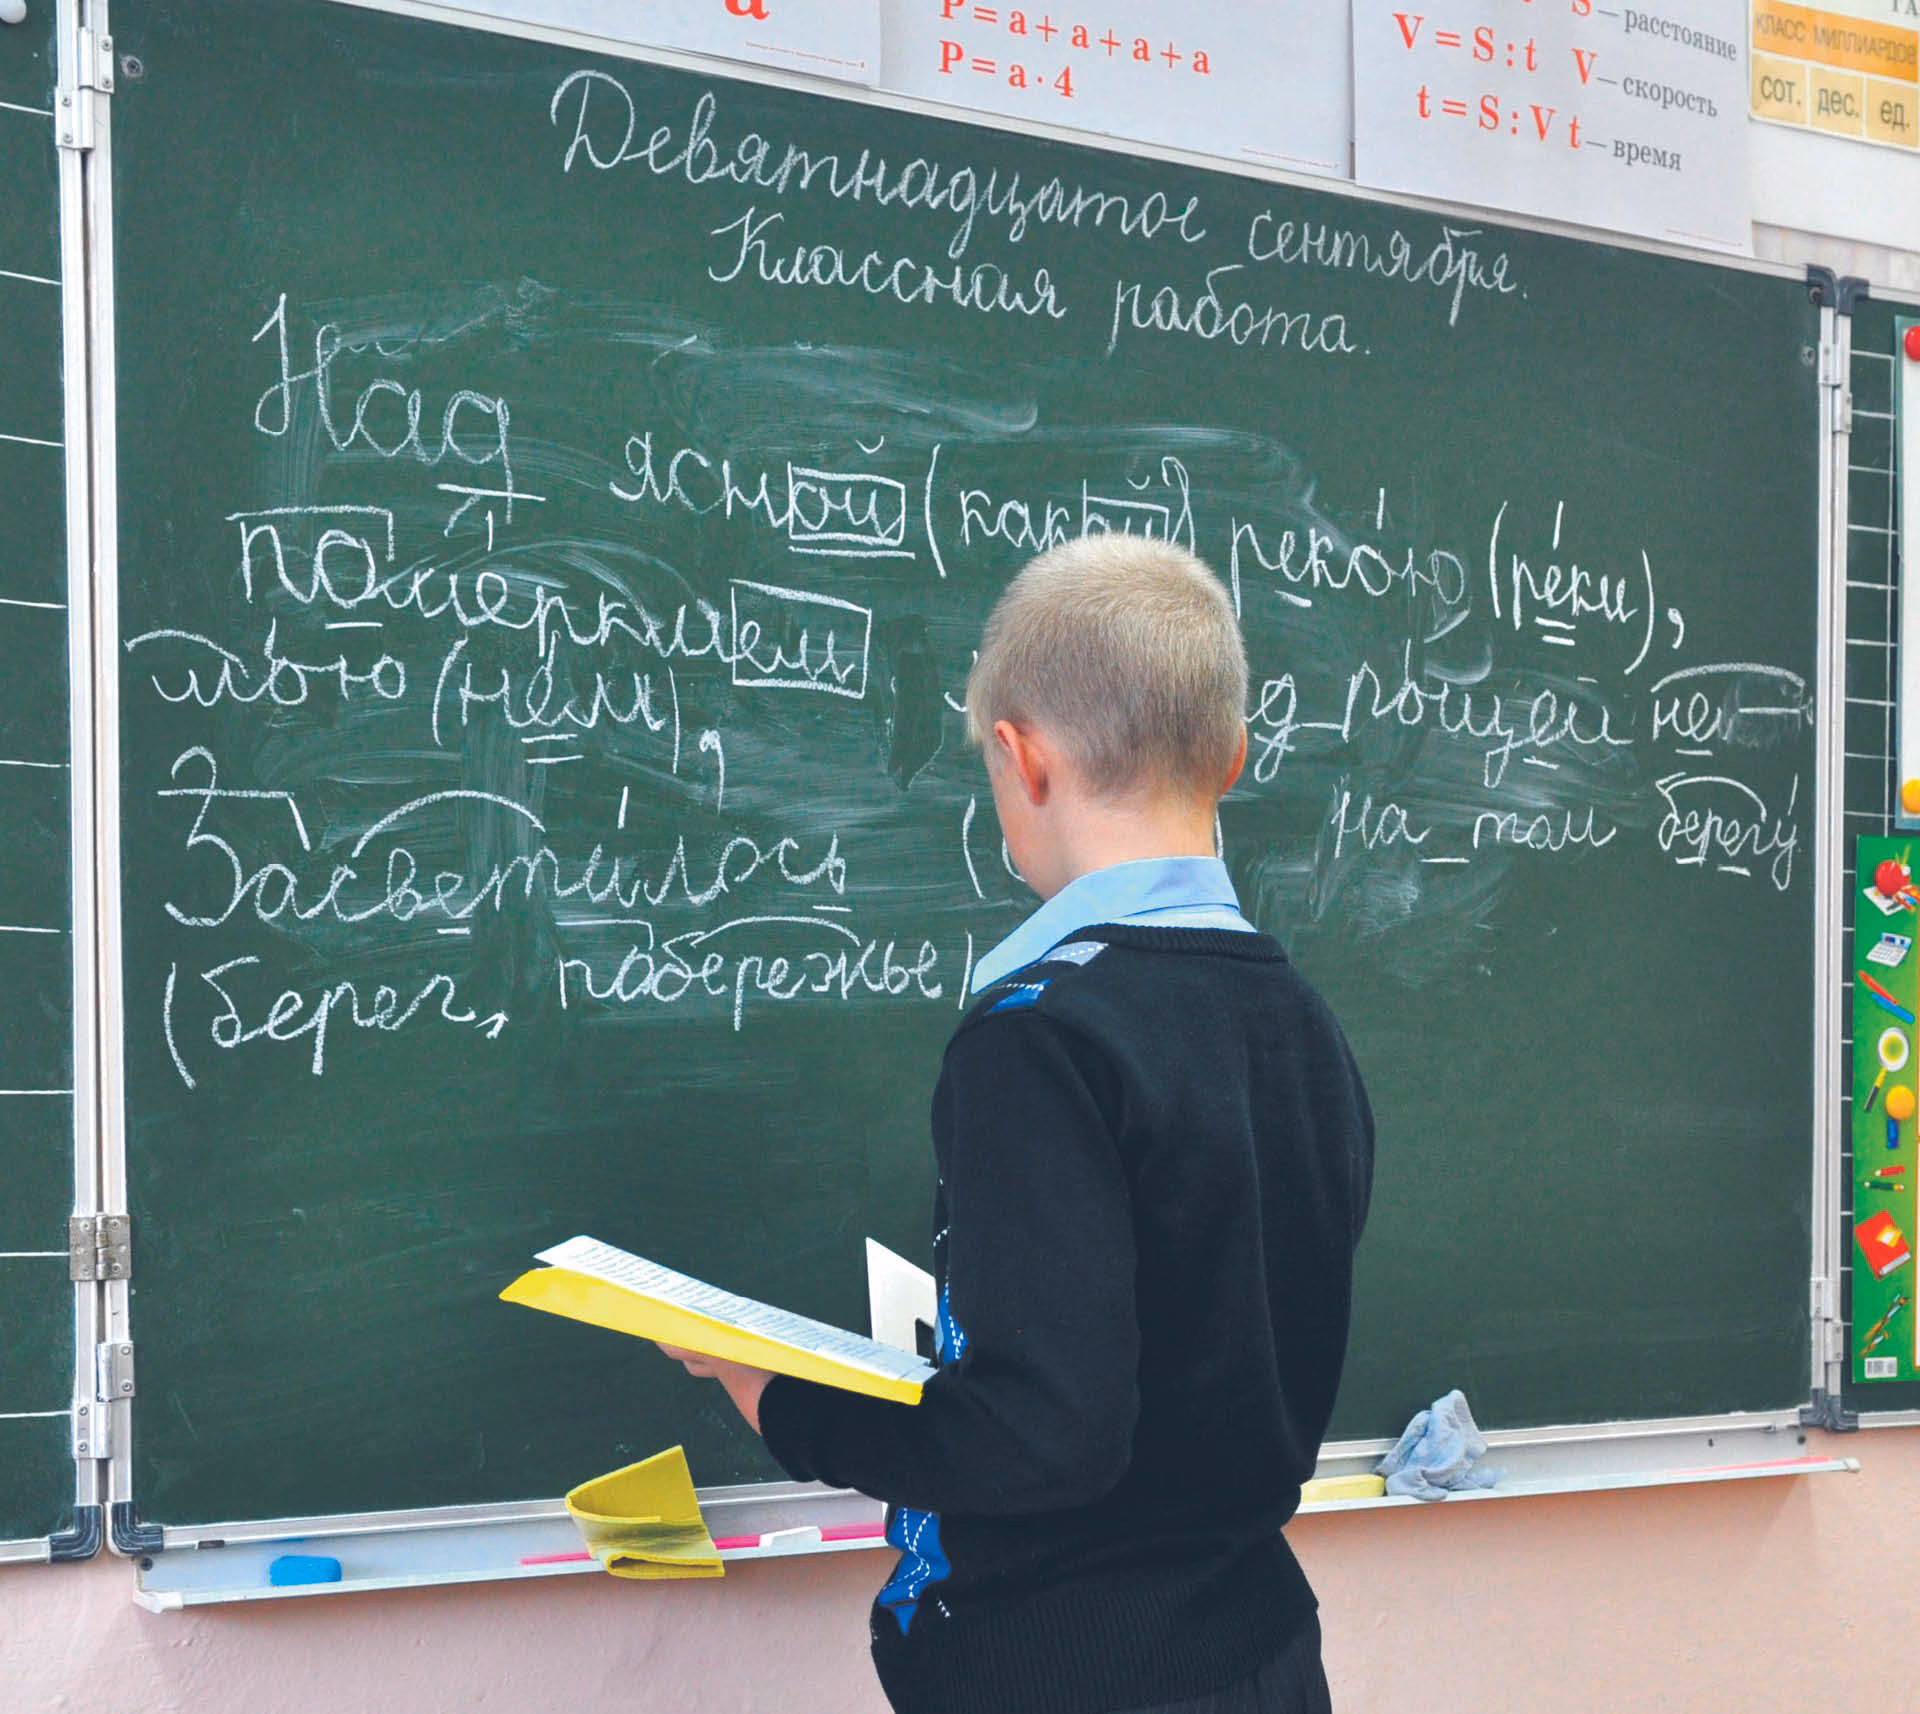 а
P = a + a + a + a
P = a · 4
S — расстояние
V = S : t V — скорость
t = S : V t — время
КЛАСС МИЛЛИАРДОВ
СОТ. ДЕС. ЕД.
Девятнадцатое сентября.
Классная работа.
Над ясной (какой?) реко́ю (ре́ки),
померкшем д ро́щей
(не́м),
Засвети́лось ( на том берегу́.
(берег, побережье)